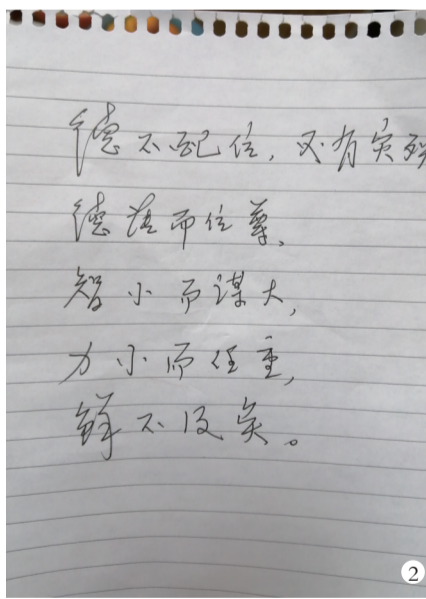 德不配位，必有灾殃
德薄而位尊，
智小而谋大，
力小而任重，
鲜不及矣。
2